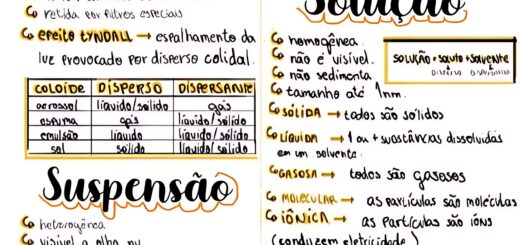 retida por filtros especiais
efeito TYNDALL → espalhamento da
luz provocado por disperso colidal.
COLOIDE DISPERSO DISPERSANTE
aerossol líquido/sólido gás
espuma gás líquido/sólido
emulsão líquido líquido/sólido
sol sólido líquido/sólido
Suspensão
heterogênea
visível a olho nu
Solução
homogênea.
não é visível.
não sedimenta
tamanho até 1nm.
SOLUÇÃO = soluto + solvente
DISPERSO DISPERSANTE
SÓLIDA → todos são sólidos
LÍQUIDA → 1 ou + substâncias dissolvidas
em um solvente.
GASOSA → todos são gasosos
MOLECULAR → as partículas são moléculas
IÔNICA → as partículas são íons
(conduzem eletricidade)